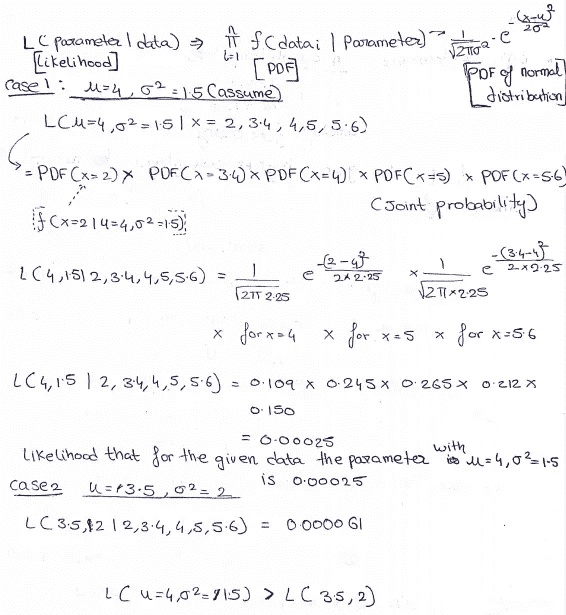 L(parameter | data) ⇒ n π i=1 f(datai | Parameter) → 1/√2πσ² · e^-(x-u)²/2σ²
[Likelihood] [PDF] [PDF of normal distribution]
case 1: u=4, σ²=1.5 (assume)
L(u=4, σ²=1.5 | x = 2, 3.4, 4, 5, 5.6)
= PDF(x=2) × PDF(x=3.4) × PDF(x=4) × PDF(x=5) × PDF(x=5.6)
(Joint probability)
f(x=2 | u=4, σ²=1.5)
L(4, 1.5 | 2, 3.4, 4, 5, 5.6) = 1/√2π 2.25 e^-(2-4)²/2×2.25 × 1/√2π×2.25 e^-(3.4-4)²/2×2.25
× for x=4 × for x=5 × for x=5.6
L(4, 1.5 | 2, 3.4, 4, 5, 5.6) = 0.109 × 0.245 × 0.265 × 0.212 ×
0.150
= 0.00025
Likelihood that for the given data the parameter with u=4, σ²=1.5
is 0.00025
case 2 u=3.5, σ²=2
L(3.5, 2 | 2, 3.4, 4, 5, 5.6) = 0.000061
L(u=4, σ²=1.5) > L(3.5, 2)